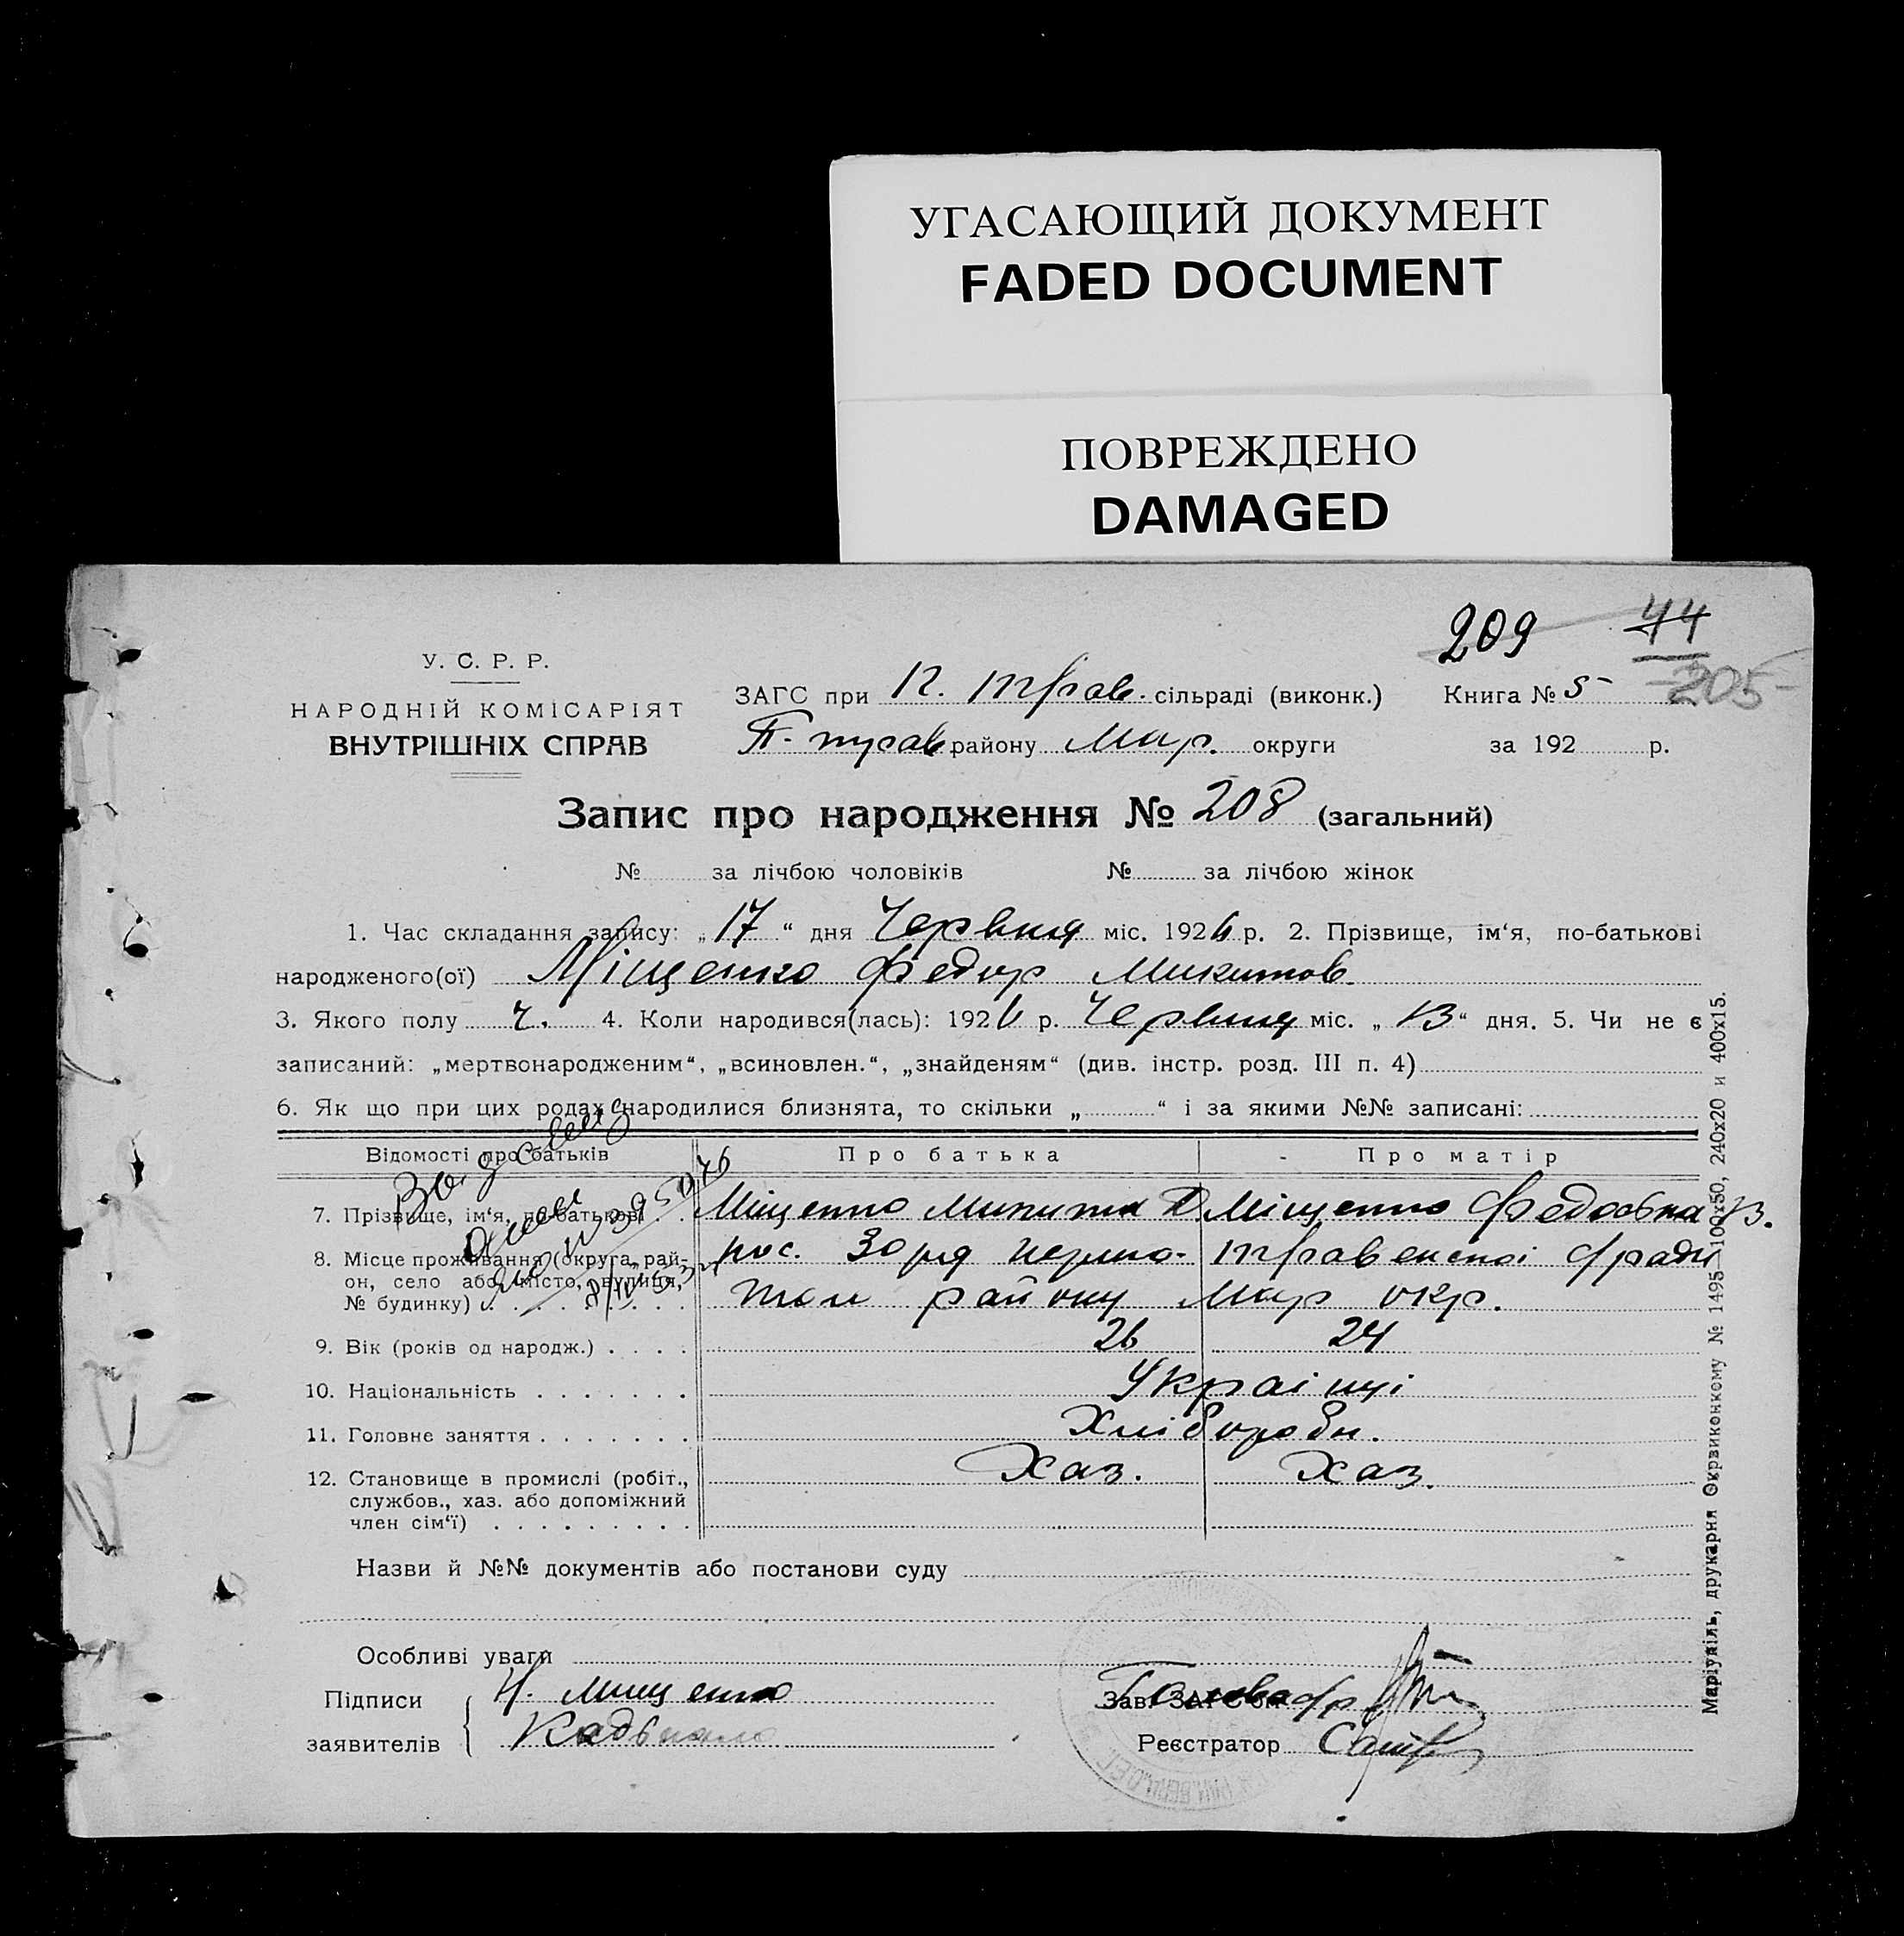 УГАСАЮЩИЙ ДОКУМЕНТ
FADED DOCUMENT
ПОВРЕЖДЕНО
DAMAGED
209 44
205
У. С. Р. Р.
НАРОДНІЙ КОМІСАРІЯТ
ВНУТРІШНІХ СПРАВ
ЗАГС при П. трав. сільраді (виконк.) Книга № 5
району Мар. округи за 192 р.
Запис про народження № 208 (загальний)
№ за лічбою чоловіків № за лічбою жінок
1. Час складання запису: „17“ дня Червня міс. 1926 р. 2. Прізвище, ім‘я, по-батькові
народженого(ої) Міщенко Федор Микитов.
3. Якого полу ч. 4. Коли народився(лась): 1926 р. Червня міс. „13“ дня. 5. Чи не є
записаний: „мертвонародженим“, „всиновлен.“, „знайденям“ (див. інстр. розд. III п. 4)
6. Як що при цих родах народилися близнята, то скільки „ “ і за якими №№ записані:
Відомості про батьків Про батька Про матір
7. Прізвище, ім‘я, по-батькові Міщенко Микита Міщенко Федоська
8. Місце проживання (округа, рай-
он, село або місто, вулиця,
№ будинку) пос. Зоря травенскоі с/ради
району Мар окр.
9. Вік (років од народж.) 26 24
10. Національність Украінці
11. Головне заняття Хлібороби.
12. Становище в промислі (робіт.,
службов., хаз. або допоміжний
член сім‘ї) Хаз. Хаз.
Назви й №№ документів або постанови суду
Особливі уваги
Підписи
заявителів
Н. Мищенко
Зав. ЗАГС‘ом Голова с/р
Реєстратор
Маріупіль, друкарня Окрвиконкому № 1495—100х50, 240х20 и 400х15.